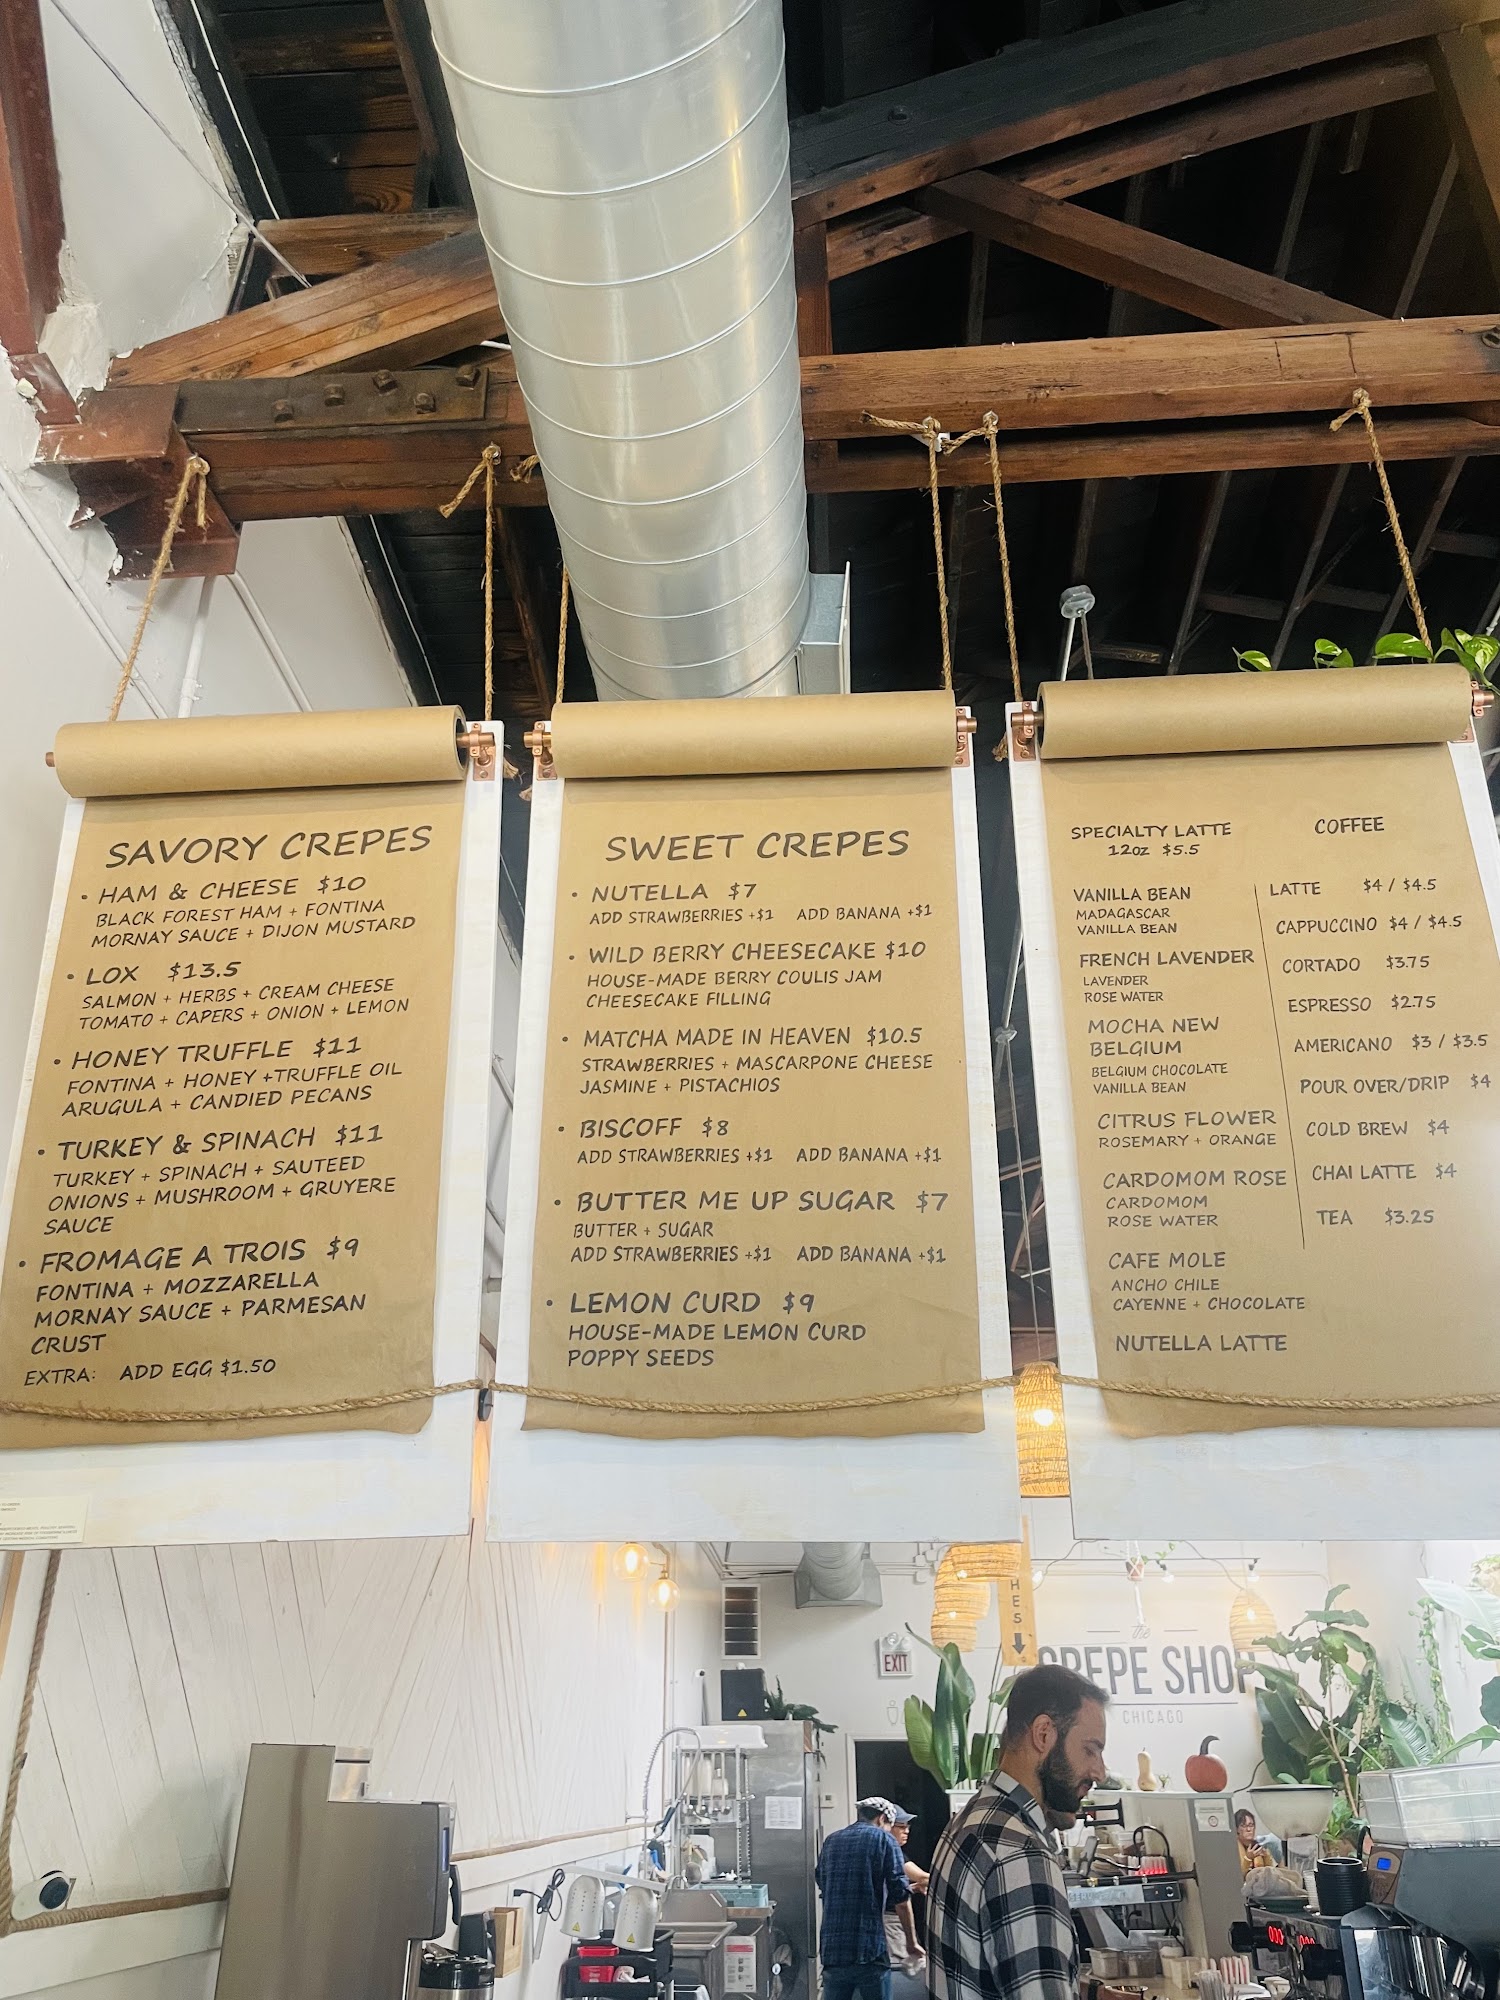 SAVORY CREPES
• HAM & CHEESE $10
BLACK FOREST HAM + FONTINA
MORNAY SAUCE + DIJON MUSTARD
• LOX $13.5
SALMON + HERBS + CREAM CHEESE
TOMATO + CAPERS + ONION + LEMON
• HONEY TRUFFLE $11
FONTINA + HONEY +TRUFFLE OIL
ARUGULA + CANDIED PECANS
• TURKEY & SPINACH $11
TURKEY + SPINACH + SAUTEED
ONIONS + MUSHROOM + GRUYERE
SAUCE
• FROMAGE A TROIS $9
FONTINA + MOZZARELLA
MORNAY SAUCE + PARMESAN
CRUST
EXTRA: ADD EGG $1.50
SWEET CREPES
• NUTELLA $7
ADD STRAWBERRIES +$1 ADD BANANA +$1
• WILD BERRY CHEESECAKE $10
HOUSE-MADE BERRY COULIS JAM
CHEESECAKE FILLING
• MATCHA MADE IN HEAVEN $10.5
STRAWBERRIES + MASCARPONE CHEESE
JASMINE + PISTACHIOS
• BISCOFF $8
ADD STRAWBERRIES +$1 ADD BANANA +$1
• BUTTER ME UP SUGAR $7
BUTTER + SUGAR
ADD STRAWBERRIES +$1 ADD BANANA +$1
• LEMON CURD $9
HOUSE-MADE LEMON CURD
POPPY SEEDS
SPECIALTY LATTE
12oz $5.5
VANILLA BEAN
MADAGASCAR
VANILLA BEAN
FRENCH LAVENDER
LAVENDER
ROSE WATER
MOCHA NEW
BELGIUM
BELGIUM CHOCOLATE
VANILLA BEAN
CITRUS FLOWER
ROSEMARY + ORANGE
CARDOMOM ROSE
CARDOMOM
ROSE WATER
CAFE MOLE
ANCHO CHILE
CAYENNE + CHOCOLATE
NUTELLA LATTE
COFFEE
LATTE $4 / $4.5
CAPPUCCINO $4 / $4.5
CORTADO $3.75
ESPRESSO $2.75
AMERICANO $3 / $3.5
POUR OVER/DRIP $4
COLD BREW $4
CHAI LATTE $4
TEA $3.25
HES
EXIT
the
CREPE SHOP
CHICAGO